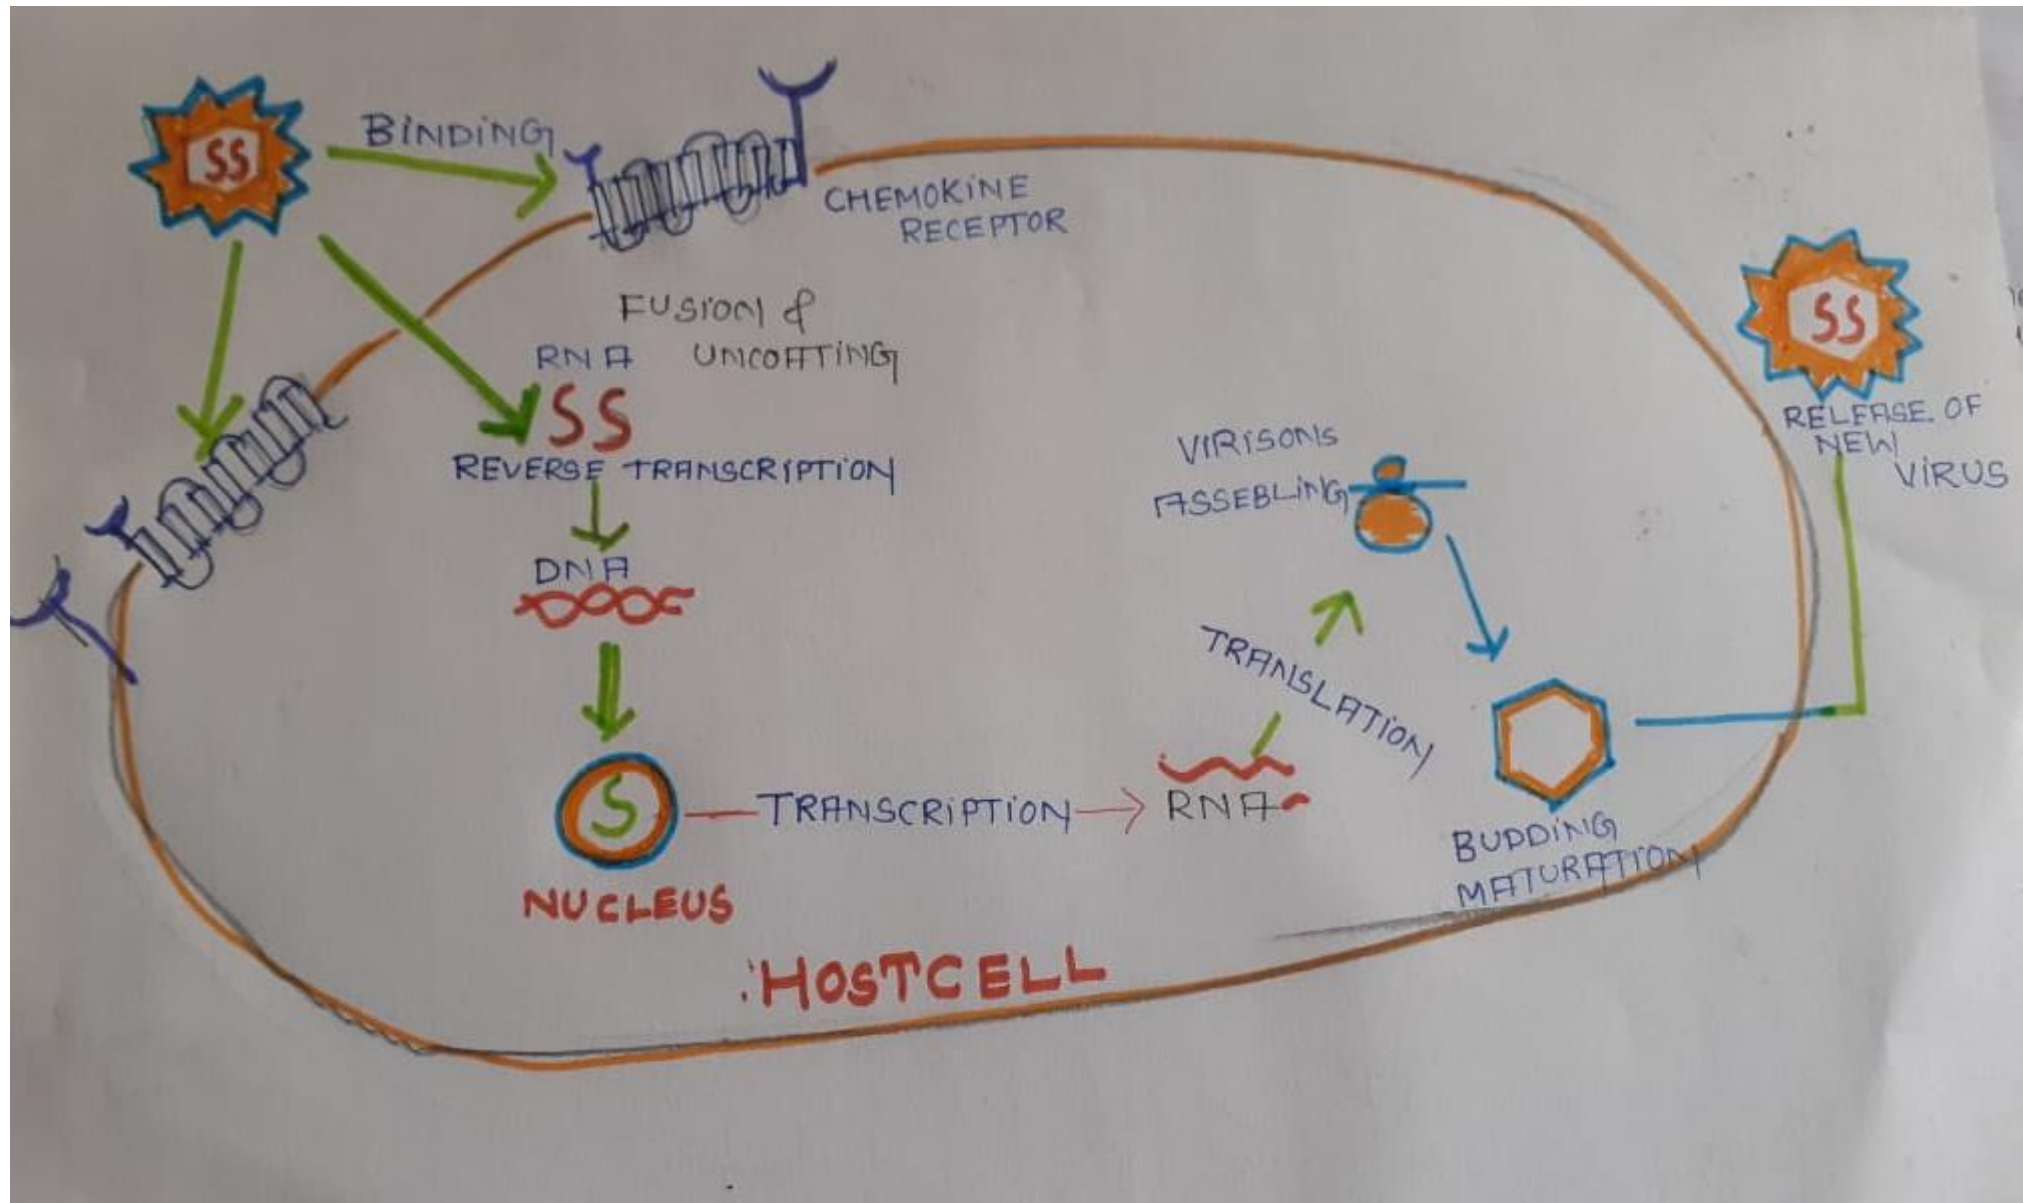 SS
BINDING
CHEMOKINE
RECEPTOR
FUSION &
UNCOATING
RNA
SS
REVERSE TRANSCRIPTION
DNA
S
NUCLEUS
TRANSCRIPTION
RNA
TRANSLATION
VIRISONS
ASSEBLING
BUDDING
MATURATION
SS
RELEASE OF
NEW
VIRUS
:HOSTCELL